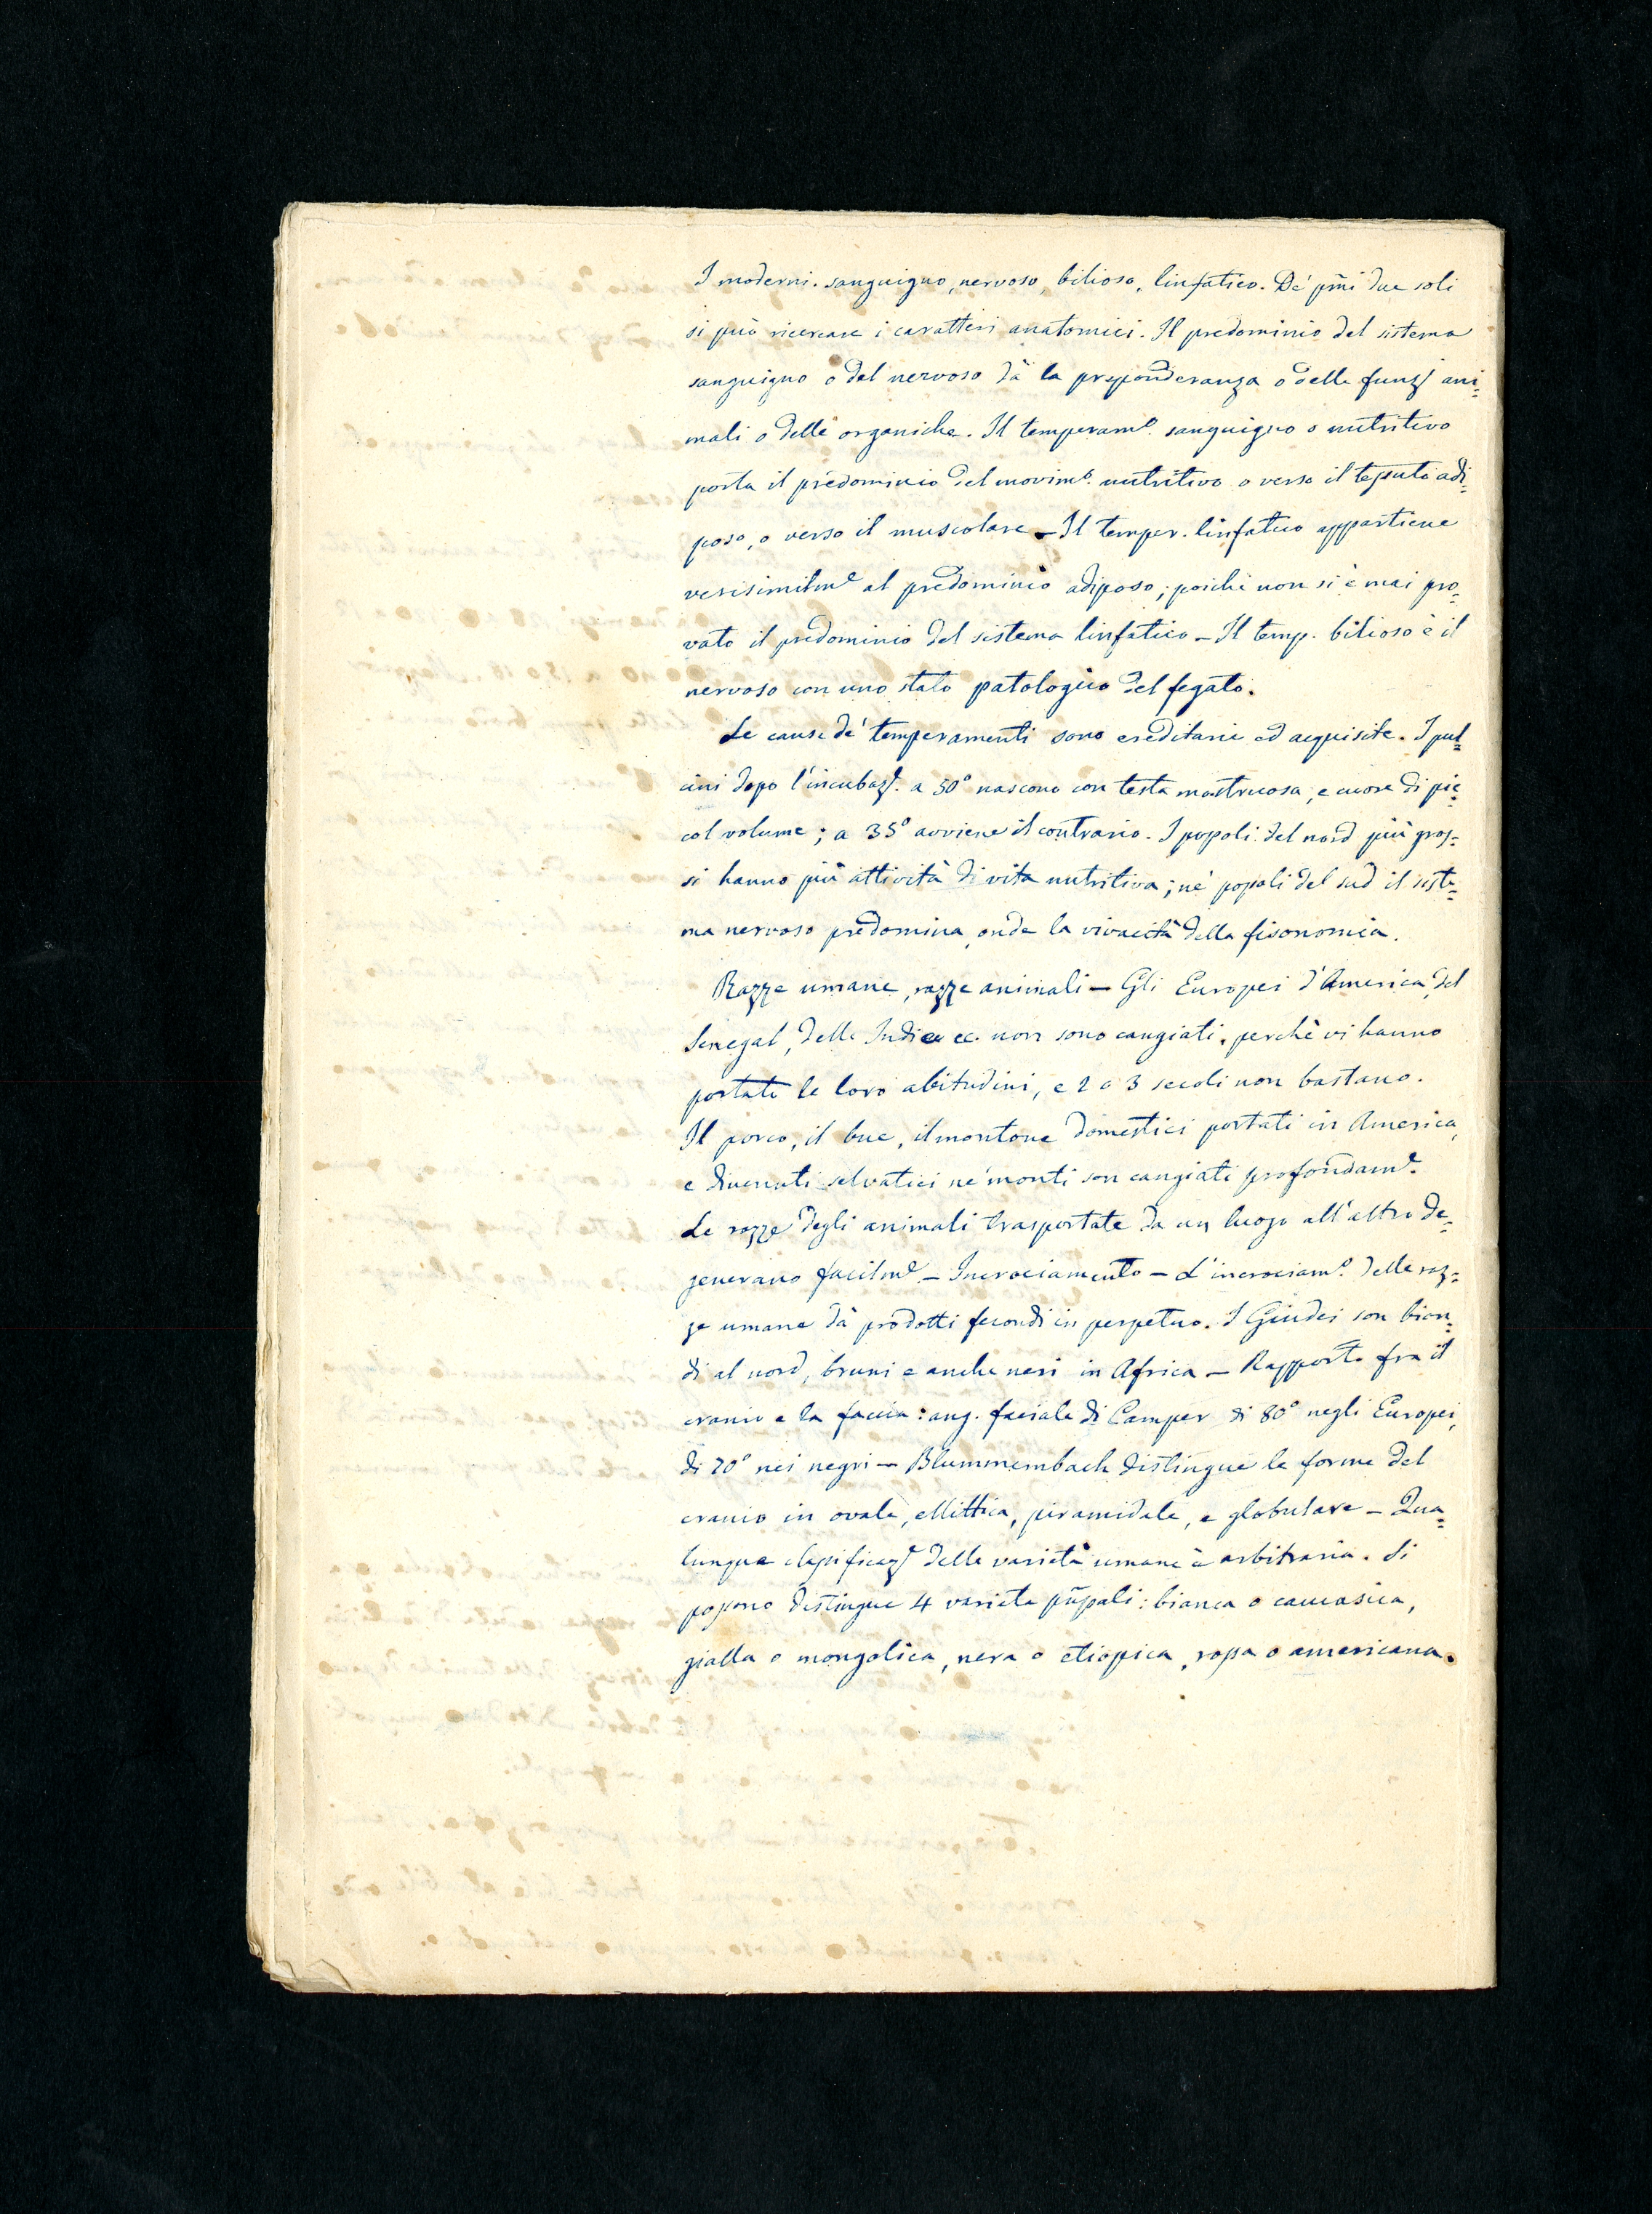 I moderni. sanguigno, nervoso, bilioso, linfatico. De' pm̃i due soli
si può ricercare i caratteri anatomici. Il predominio del sistema
sanguigno o del nervoso dà la preponderanza o delle funz. ani=
mali o delle organiche. Il temperamᵒ. sanguigno o nutritivo
porta il predominio del movimᵒ. nutritivo o verso il tessuto adi=
poso, o verso il muscolare – Il temper. linfatico appartiene
verisimilmᵉ al predominio adiposo; poichè non si è mai pro=
vato il predominio del sistema linfatico – Il temp. bilioso è il
nervoso con uno stato patologico del fegato.
Le cause de' temperamenti sono ereditarie ed acquisite. I pul=
cini dopo l'incubaz. a 50° nascono con testa mostruosa, e cuore di pic=
col volume; a 35° avviene il contrario. I popoli del nord più gros=
si hanno più attività di vita nutritiva; ne' popoli del sud il siste=
ma nervoso predomina, onde la vivacità della fisonomia.
Razze umane, razze animali – Gli Europei d'America, del
Senegal, delle Indie ec. non sono cangiati, perchè vi hanno
portate le loro abitudini, e 2 o 3 secoli non bastano.
Il porco, il bue, il montone domestici portati in America,
e divenuti selvatici ne' monti son cangiati profondamᵉ.
Le razze degli animali trasportate da un luogo all'altro de=
generano facilmᵉ – Incrociamento – L'incrociamᵒ. delle raz=
ze umane dà prodotti fecondi in perpetuo. I Giudei son bion=
di al nord, bruni e anche neri in Africa – Rapporto fra il
cranio e la faccia: ang. facciale di Camper di 80° negli Europei,
di 70° nei negri – Blummembach distingue le forme del
cranio in ovale, ellittica, piramidale, e globulare – Qua=
lunque classificaz. delle varietà umane è arbitraria. Si
possono distingue 4 varietà pñpali: bianca o caucasica,
gialla o mongolica, nera o etiopica, rossa o americana.